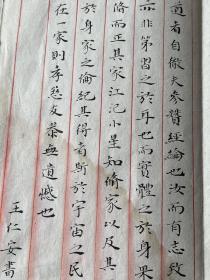 道者自儆夫參贊經綸也汝而有志敢
不非第習之於耳也而實體之於身果
脩而正其家江汜小星知脩家以及其
於身家之倫紀其得者斯於宇宙之民
在一家則孝慈友恭無遺憾也
王仁安書